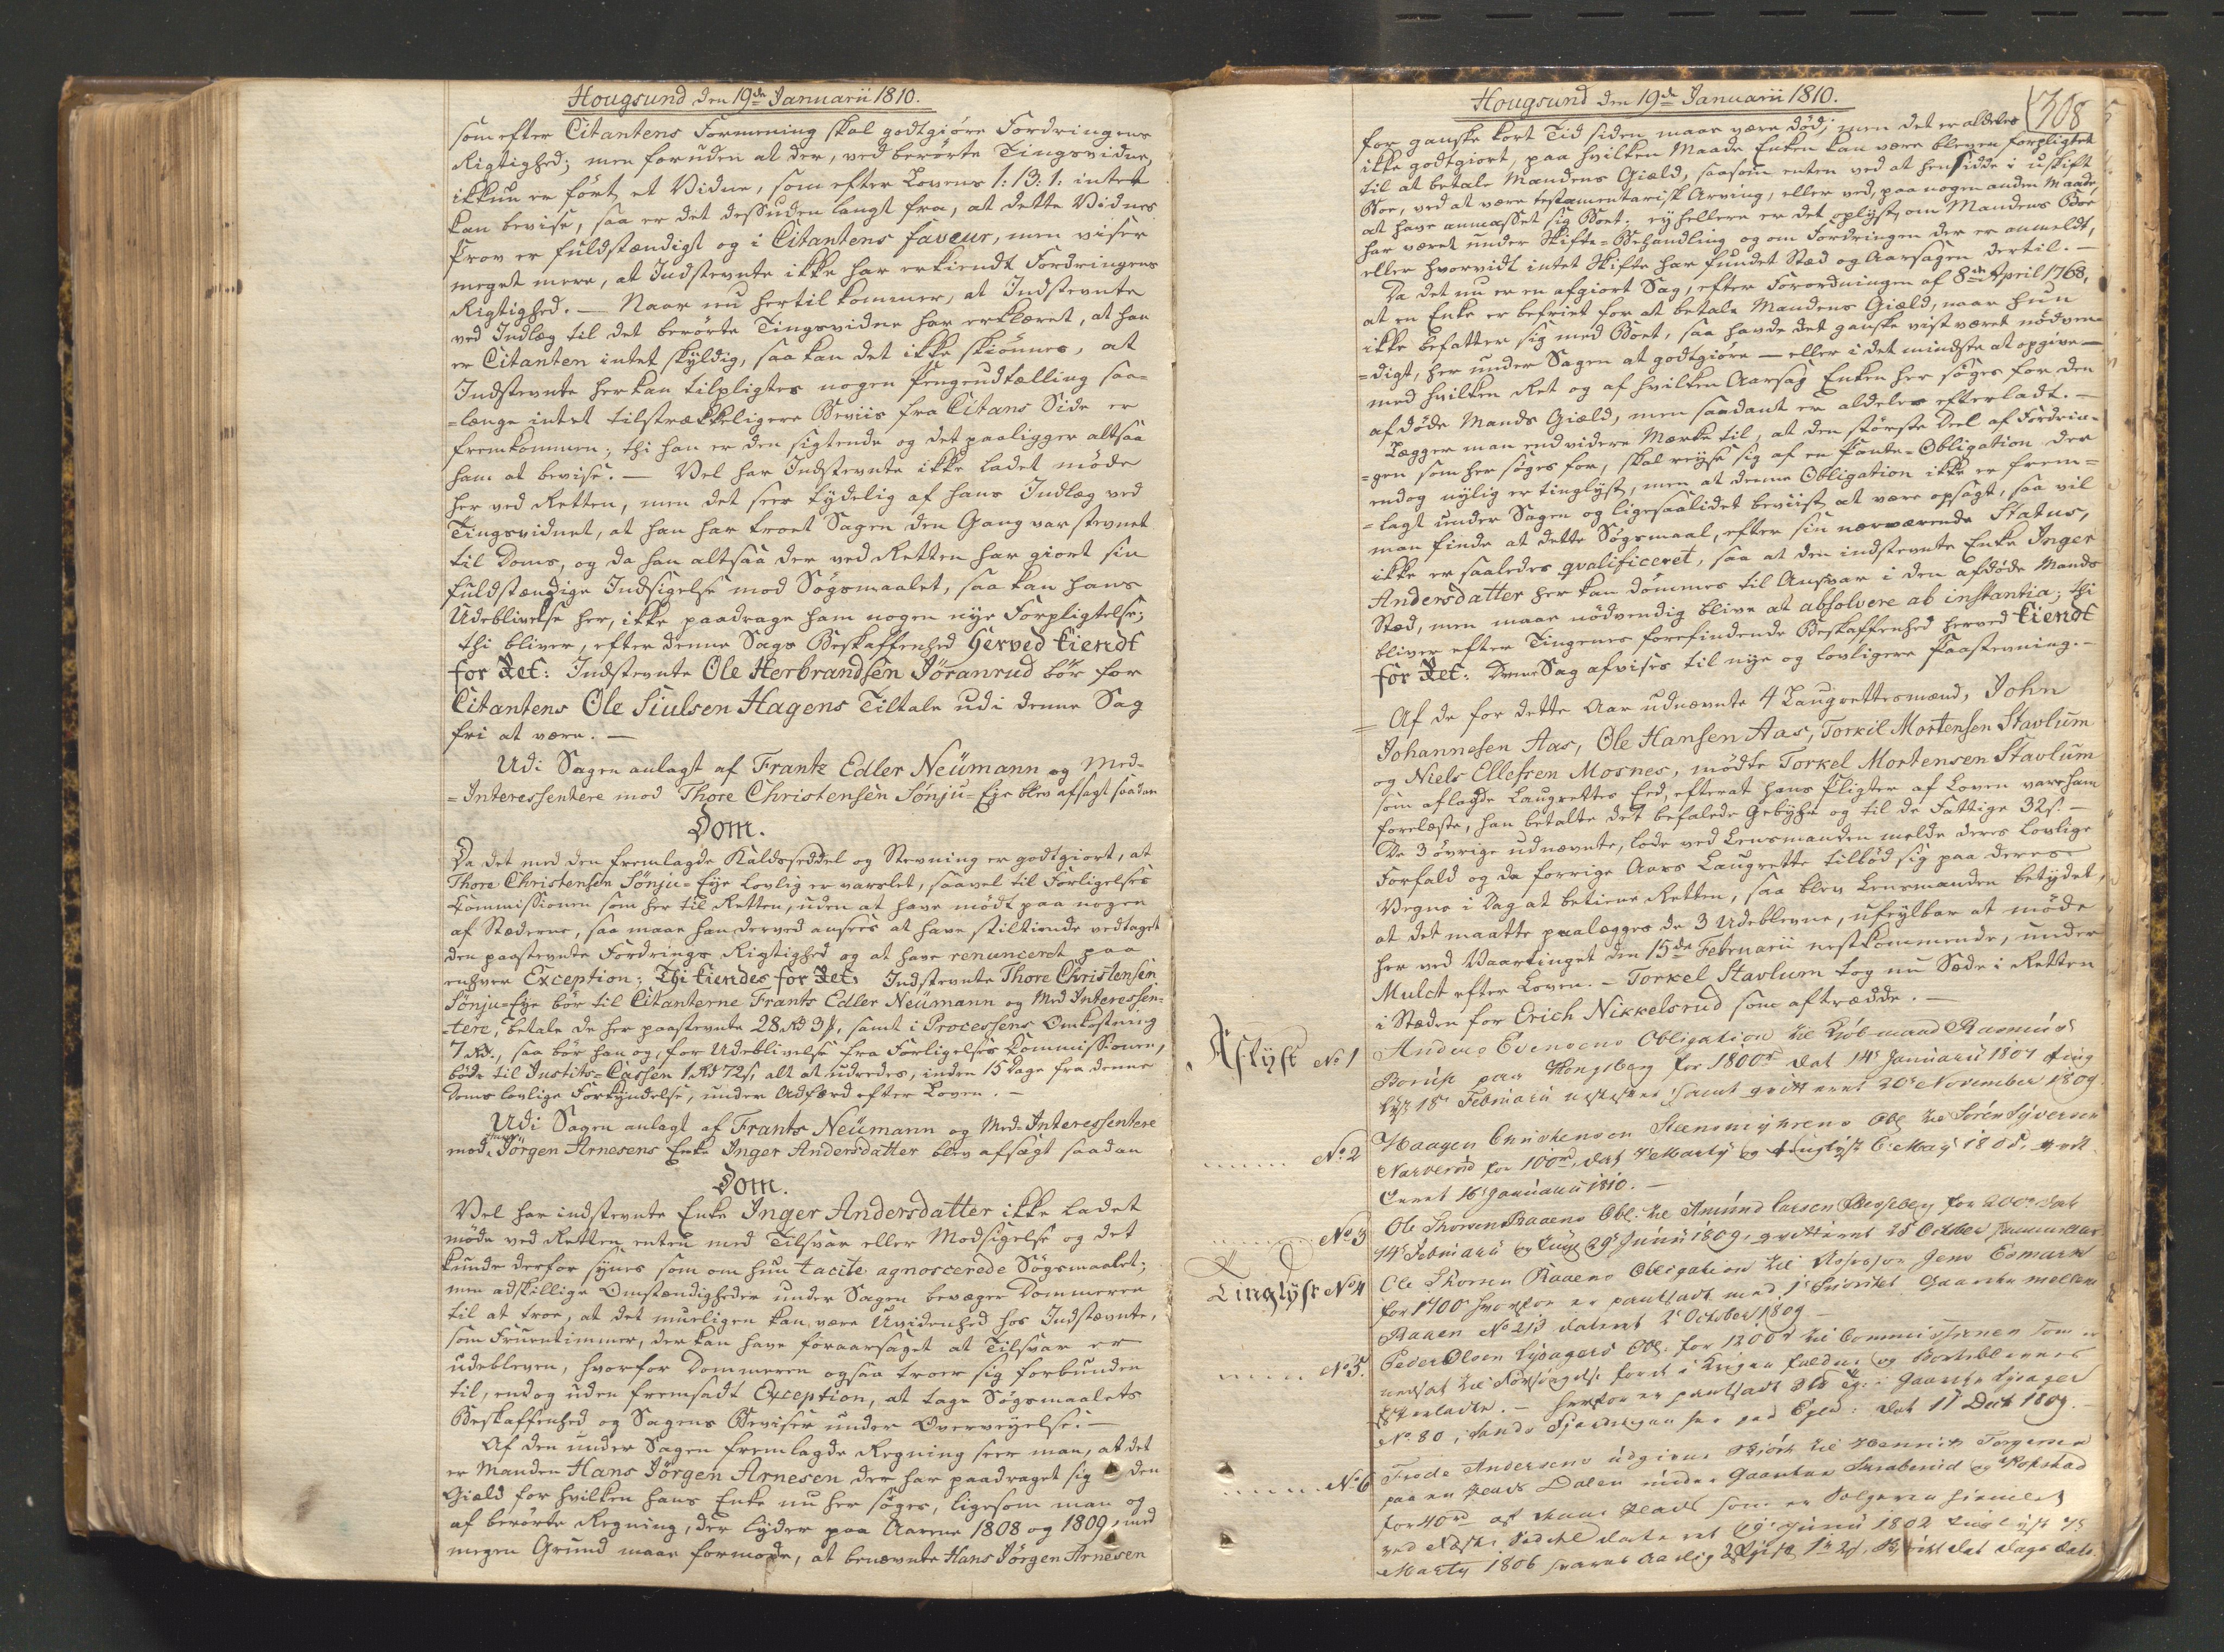 Hougsund den 19de Januarii 1810.
som efter Citantens Formening skal godtgiöre Fordringens
Rigtighed; men foruden at der, ved berörte Tingsvidne,
ikkun er fört et Vidne, som efter Lovens 1: 13: 1: intet
kan bevise, saa er det dessuden langt fra, at dette Vidnes
Prov er fuldstændigt og i Citantens faveur, men viser
meget mere, at Indstevnte ikke har erkiendt Fordringens
Rigtighed. — Naar nu hertil kommer, at Indstevnte
ved Indlæg til det berörte Tingsvidne har erklæret, at han
er Citanten intet skyldig, saa kan det ikke skiönnes, at
Indstevnte her kan tilpligtes nogen Pengeudtælling saa-
=længe intet tilstrækkeligere Beviis fra Citans Side er
fremkommen; thi han er den sigtende og det paaligger altsaa
ham at bevise. — Vel har Indstevnte ikke ladet möde
her ved Retten, men det sees tydelig af hans Indlæg ved
Tingsvidnet, at han har troet Sagen den Gang var stevnet
til Doms, og da han altsaa der ved Retten har giort sin
fuldstændige Indsigelse mod Søgsmaalet, saa kan hans
Udeblivelse her, ikke paadrage ham nogen nye Forpligtelse;
thi bliver, efter denne Sags Beskaffenhed herved kiendt
for Ret: Indstevnte Ole Herbrandsen Jöranrud bör for
Citantens Ole Siulsen Hagens Tiltale udi denne Sag
fri at være. —
Udi Sagen anlagt af Frantz Edler Neümann og Med-
=Interessentere mod Thore Christensen Sönju-Eye blev afsagt saadan
Dom.
Da det med den fremlagde Kaldsseddel og Stevning er godtgiort, at
Thore Christensen Sönju-Eye lovlig er varslet, saavel til Forligelses
Commissionen som her til Retten, uden at have mödt paa nogen
af Stæderne, saa maae han derved ansees at have stiltiende vedtaget
den paastevnte Fordrings Rigtighed og at have renunceret paa
enhver Exception; Thi kiendes for Ret: Indstevnte Thore Christensen
Sönju-Eye bör til Citanterne Frants Edler Neümann og Med Interessen-
=tere, betale de her paastevnte 28 Rd 3 s, samt i Processens Omkostning
7 Rd., saa bör han og, for Udeblivelse fra Forligelses Commissionen,
böde til Justits-Cassen 1 Rd 72 s, alt at udredes, inden 15 Dage fra denne
Doms lovlige Forkyndelse, under Adfærd efter Loven. —
Udi Sagen anlagt af Frants Neümann og Med-Interessentere
mod Hans Jörgen Arnesens Enke Inger Andersdatter blev afsagt saadan
Dom.
Vel har indstevnte Enke Inger Andersdatter ikke ladet
möde ved Retten enten med Tilsvar eller Modsigelse og det
kunde derfor synes som om hun tacite agnoscerede Søgsmaalet;
men adskillige Omstændigheder under Sagen bevæger Dommeren
til at troe, at det mueligen kan være Uvidenhed hos Indstævnte,
som Fruentimmer, der kan have foraarsaget at Tilsvar er
udebleven, hvorfor Dommeren ogsaa troer sig forbunden
til, endog uden fremsadt Exception, at tage Søgsmaalets
Beskaffenhed og Sagens Beviser under Overveyelse. —
Af den under Sagen fremlagde Regning seer man, at det
er Manden Hans Jörgen Arnesen der har paadraget sig den
Giæld for hvilken hans Enke nu her söges, ligesom man og
af berörte Regning, der lyder paa Aarene 1808 og 1809, med
megen Grund maae formode, at benævnte Hans Jörgen Arnesen
Hougsund den 19de Januarii 1810.
308
for ganske kort Tid siden maae være död; men det er aldeles
ikke godtgiort, paa hvilken Maade Enken kan være bleven forpligtet
til at betale Mandens Giæld, saasom enten ved at hensidde i uskift
Boe, ved at være testamentarisk Arving, eller ved, paa nogen anden Maade,
at have anmasset sig Boet; ey hellere er det oplyst, om Mandens Boe
har været under Skifte-Behandling og om Fordringen der er anmeldt,
eller hvorvidt intet Skifte har fundet Sted og Aarsagen dertil. —
Da det nu er en afgiort Sag, efter Forordningen af 8de April 1768,
at en Enke er befriet for at betale Mandens Giæld, naar hun
ikke befatter sig med Boet, saa havde det ganske vist været nödven-
=digt, her under Sagen at godtgiöre — eller i det mindste at opgive —
med hvilken Ret og af hvilken Aarsag Enken her söges for den
afdöde Mands Giæld, men saadant er aldeles efterladt. —
Lægger man endvidere Mærke til, at den störste Deel af Fordrin-
=gen som her söges for, skal reyse sig af en Pante-Obligation der
endog nylig er tinglyst, men at denne Obligation ikke er frem-
=lagt under Sagen og ligesaalidet beviist at være opsagt, saa vil
man finde at dette Søgsmaal, efter sin nærværende Status,
ikke er saaledes qvalificeret, saa at den indstevnte Enke Inger
Andersdatter her kan dömmes til Ansvar i den afdöde Mands
Sted, men maae nödvendig blive at absolvere ab instantia; thi
bliver efter Tingenes forefindende Beskaffenhed herved kiendt
for Ret: Denne Sag afvises til nye og lovligere Paastevning. —
Af de for dette Aar udnævnte 4 Laugrettesmænd, John
Johannesen Aas, Ole Hansen Aas, Torkil Mortensen Stavlum
og Niels Ellefsen Mosnes, mödte Torkel Mortensen Stavlum
som aflagde Laugrettes Eed, efterat hans Pligter af Loven vare ham
forelæste, han betalte det befalede Gebyhr og til de Fattige 32 s. —
De 3 övrige udnævnte, lode ved Lensmanden melde deres lovlige
Forfald og da forrige Aars Laugrette tilböd sig paa deres
Vegne i Dag at betiene Retten, saa blev Lensmanden betydet,
at det maatte paalægges de 3 Udeblevne, ufeylbar at möde
her ved Vaartinget den 15de Februarii nestkommende, under
Mulct efter Loven. — Torkel Stavlum tog nu Sæde i Retten
i Steden for Erich Nikkelsrud som aftrædde. —
Aflyst No 1 Anders Evensens Obligation til Kiöbmand Rasmus
Borup paa Kongsberg for 1800 rd dat 14de Januarii 1807 ting
lyst 18 Februarii samt qvitteret 30te November 1809.
No 2 Haagen Christensen Steensmyhrens Obl til Sören Syversen
Narverød for 100 rd, dat 7 Marty og tinglyst 6 May 1808, qvit
teret 16 Januarii 1810. —
No 3 Ole Thorsen Raaens Obl. til Amund Larsen for 200 rd dat
14de Februarii og tingl 29de Junii 1809, qvitteret 28 October samme Aar.
Tinglyst No 4 Ole Thorsen Raaens Obligation til Assessor Jens Esmark
for 1700 rd hvorfor er pantsadt med 1te Prioritet Gaarden mellem
Raaen No 213 dateret 2 October 1809
No 5. Peder Olsen Lysagers Obl. for 1200 rd til Commissionen som er
nedsat til Forsörgelse for de i Krigen faldne og
Efterladte. — hvorfor er pantsadt Gaarden Lysager
No 80, i Sands Fierding Eger: dat 17 Decb 1809.
No 6 Frode Andersens udgivne Skiöde til Henrik Torgersen
paa en Plads Dalen under Gaarden og Hokstad
for 40 rd af Plads som er Sælgeren hiemlet
ved Skiöde dateret Junii 1802 tinglyst
Marty 1806